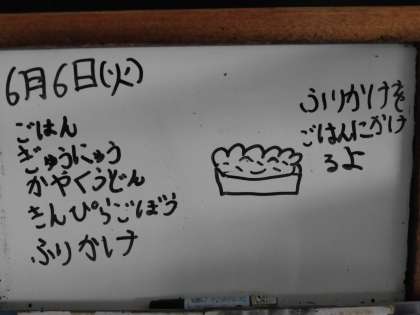 6月6日(火)
ごはん
ぎゅうにゅう
かやくうどん
きんぴらごぼう
ふりかけ
ふりかけを
ごはんにかけ
るよ